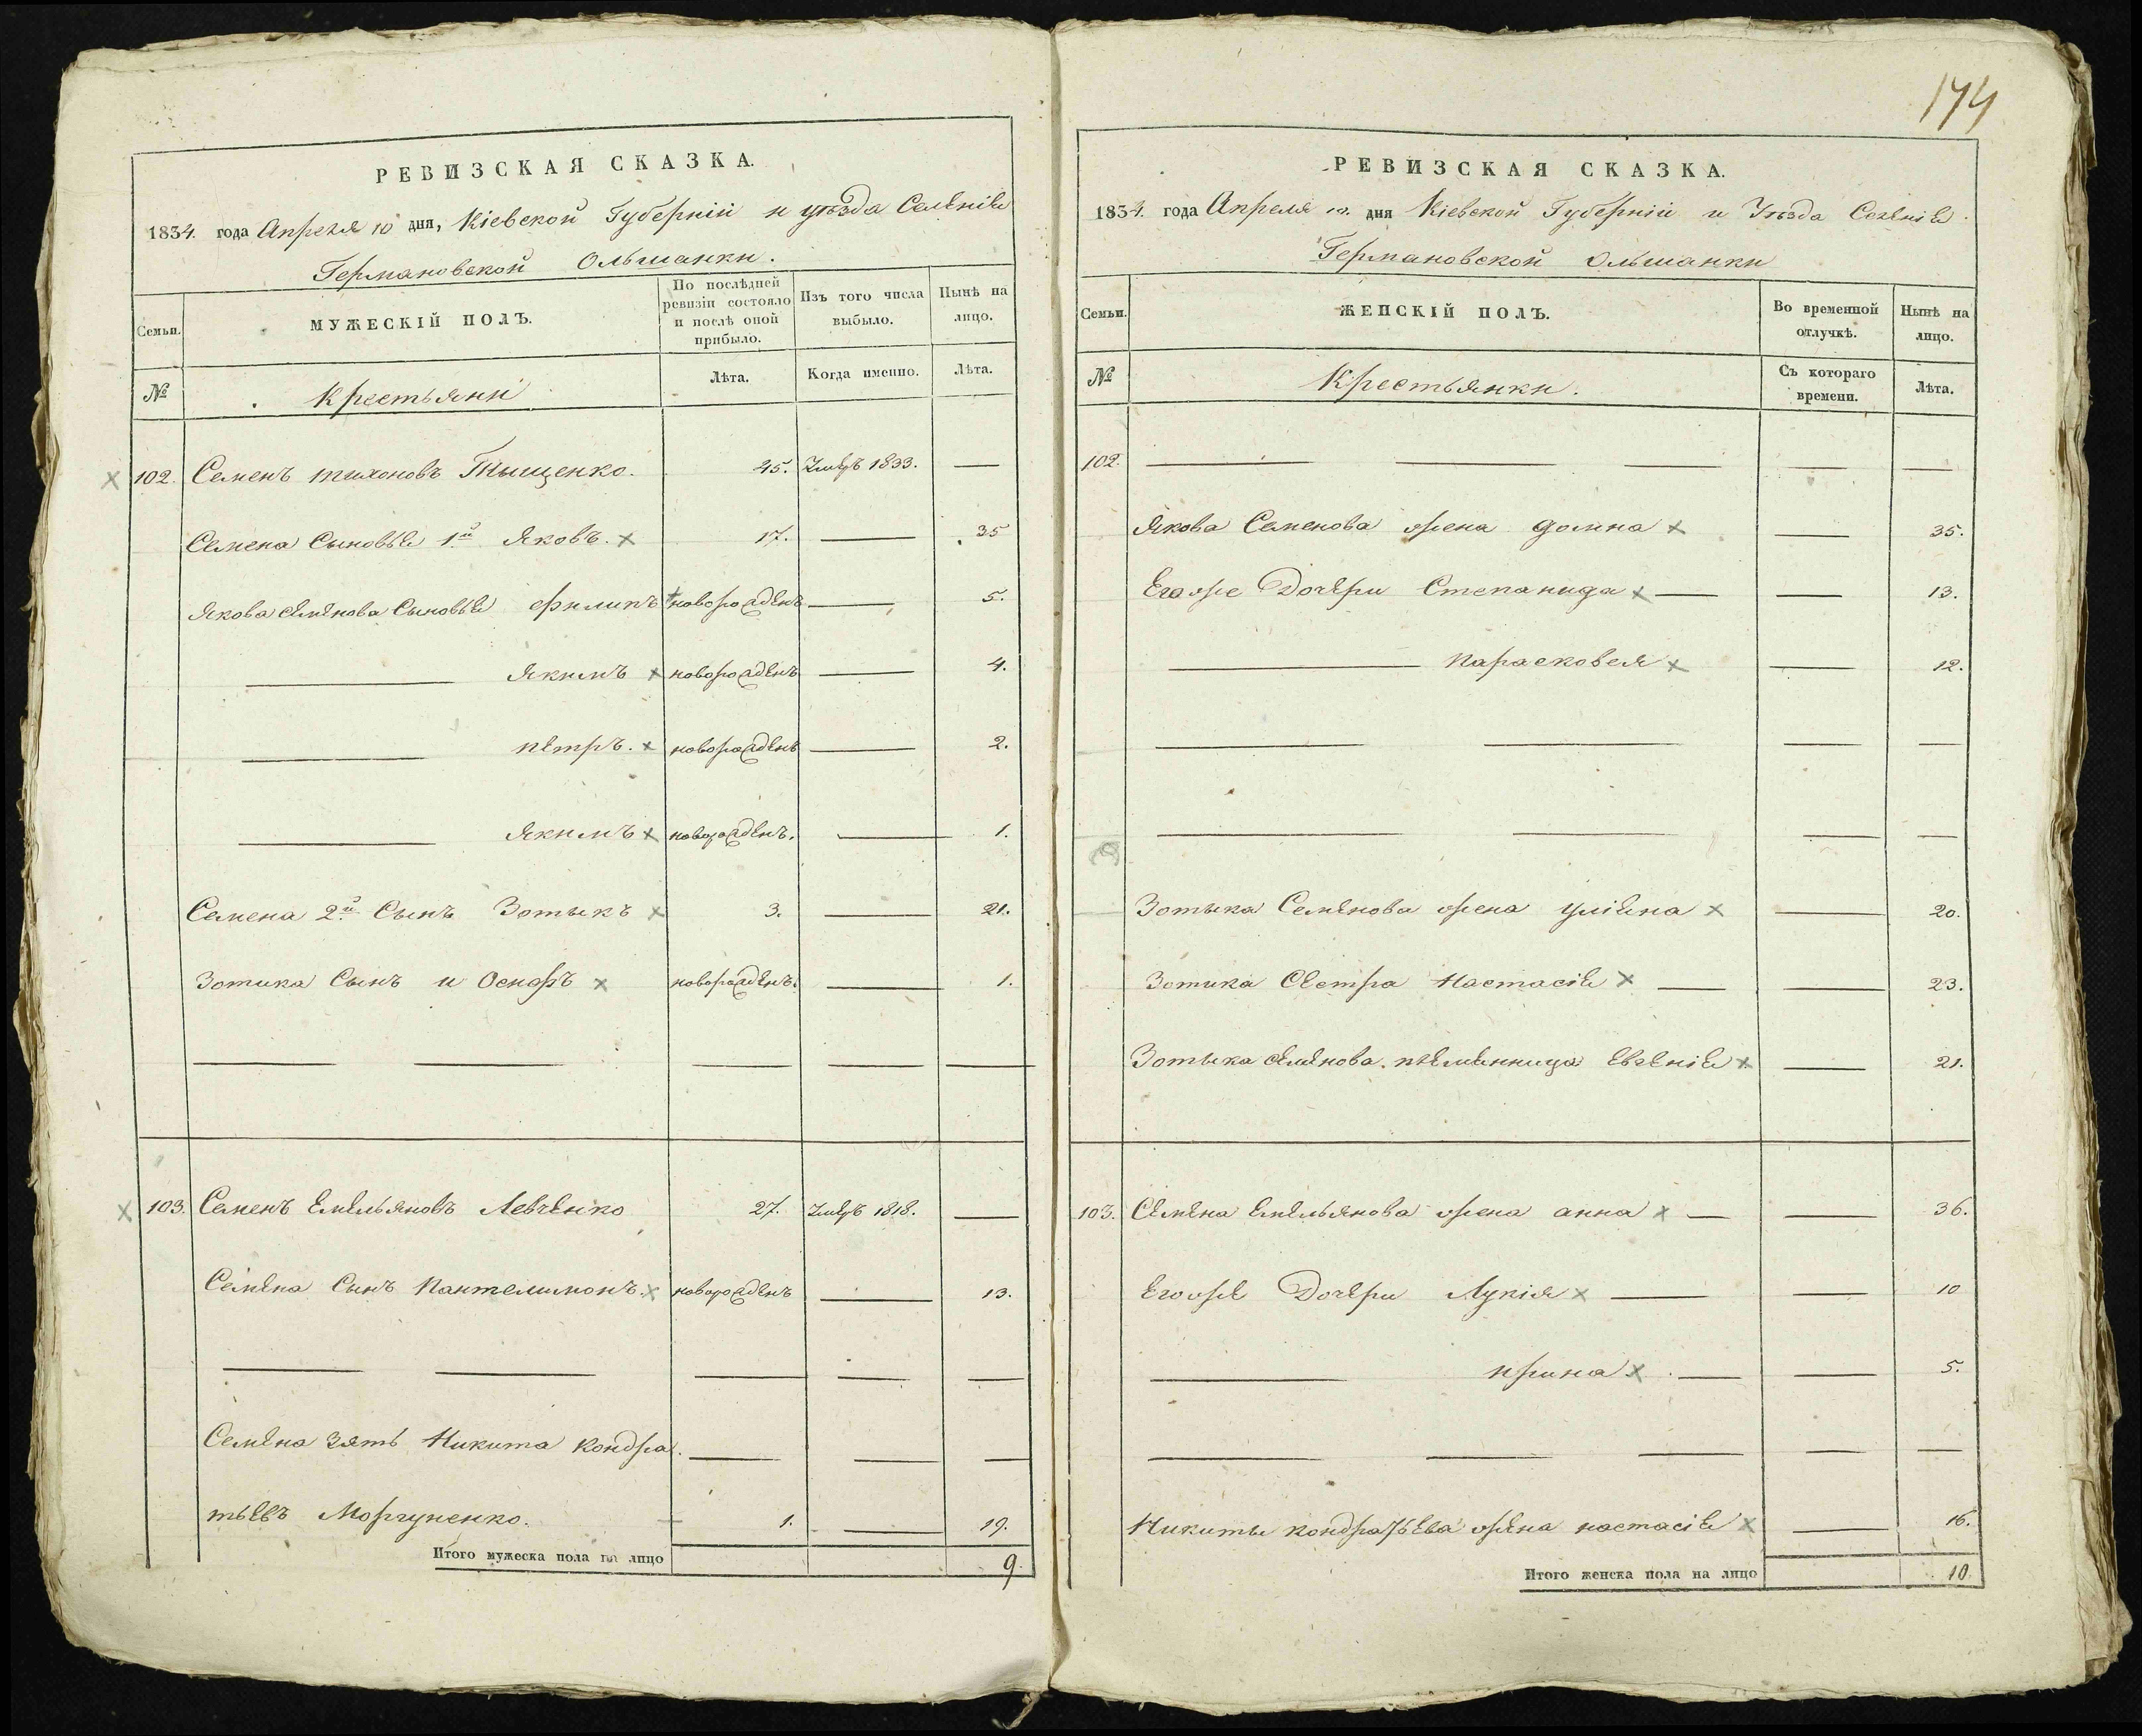 174
РЕВИЗСКАЯ СКАЗКА.
1834. года Апреля 10 дня, Кіевской Губерніи и уѣзда Селеніе
Германовской Ольшанки.
Семьи.
МУЖЕСКІЙ ПОЛЪ.
По послѣдней ревизіи состояло и послѣ оной прибыло.
Изъ того числа выбыло.
Нынѣ на лицо.
№
Крестьяни
Лѣта.
Когда именно.
Лѣта.
102. Семенъ тихоновъ Тыщенко. 45. Умеръ 1833. —
Семена Сыновье 1й Яковъ. x 17. — 35
Якова семенова Сыновье Филипъ новорожденъ — 5.
— Якимъ x новорожденъ — 4.
— петръ. x новорожденъ — 2.
— Якимъ x новорожденъ. — 1.
Семена 2й Сынъ Зотыкъ x 3. — 21.
Зотика Сынъ и Осифъ x новорожденъ. — 1.
— — — — —
103. Семенъ Емельяновъ Левченко 27. Умеръ 1818. —
Семена Сынъ Пантелимонъ. x новорожденъ — 13.
— — — — —
Семена Зять Никита Кондра — — —
тьевъ Моргуненко. 1. — 19.
Итого мужеска пола на лицо 9.
РЕВИЗСКАЯ СКАЗКА.
1834. года Апреля 10. дня Кіевской Губерніи и Уѣзда Селеніе
Германовской Ольшанки
Семьи.
ЖЕНСКІЙ ПОЛЪ.
Во временной отлучкѣ.
Нынѣ на лицо.
№
Крестьянки.
Съ котораго времени.
Лѣта.
102. — — — — —
Якова Семенова жена домна x — 35.
Егоже Дочери Степанида x — — 13.
— Парасковея x — 12.
— — — —
— — — —
Зотыка Семенова жена улiена x — 20.
Зотика Сестра Настасіе x — — 23.
Зотыка семенова. племенница Евгеніе x — 21.
103. Семена Емельянова жена анна x — — 36.
Егоже Дочери Лукія x — — 10
— ирина x — — 5.
— — — — —
Никиты кондратьева жена настасіе x — 16.
Итого женска пола на лицо 10.